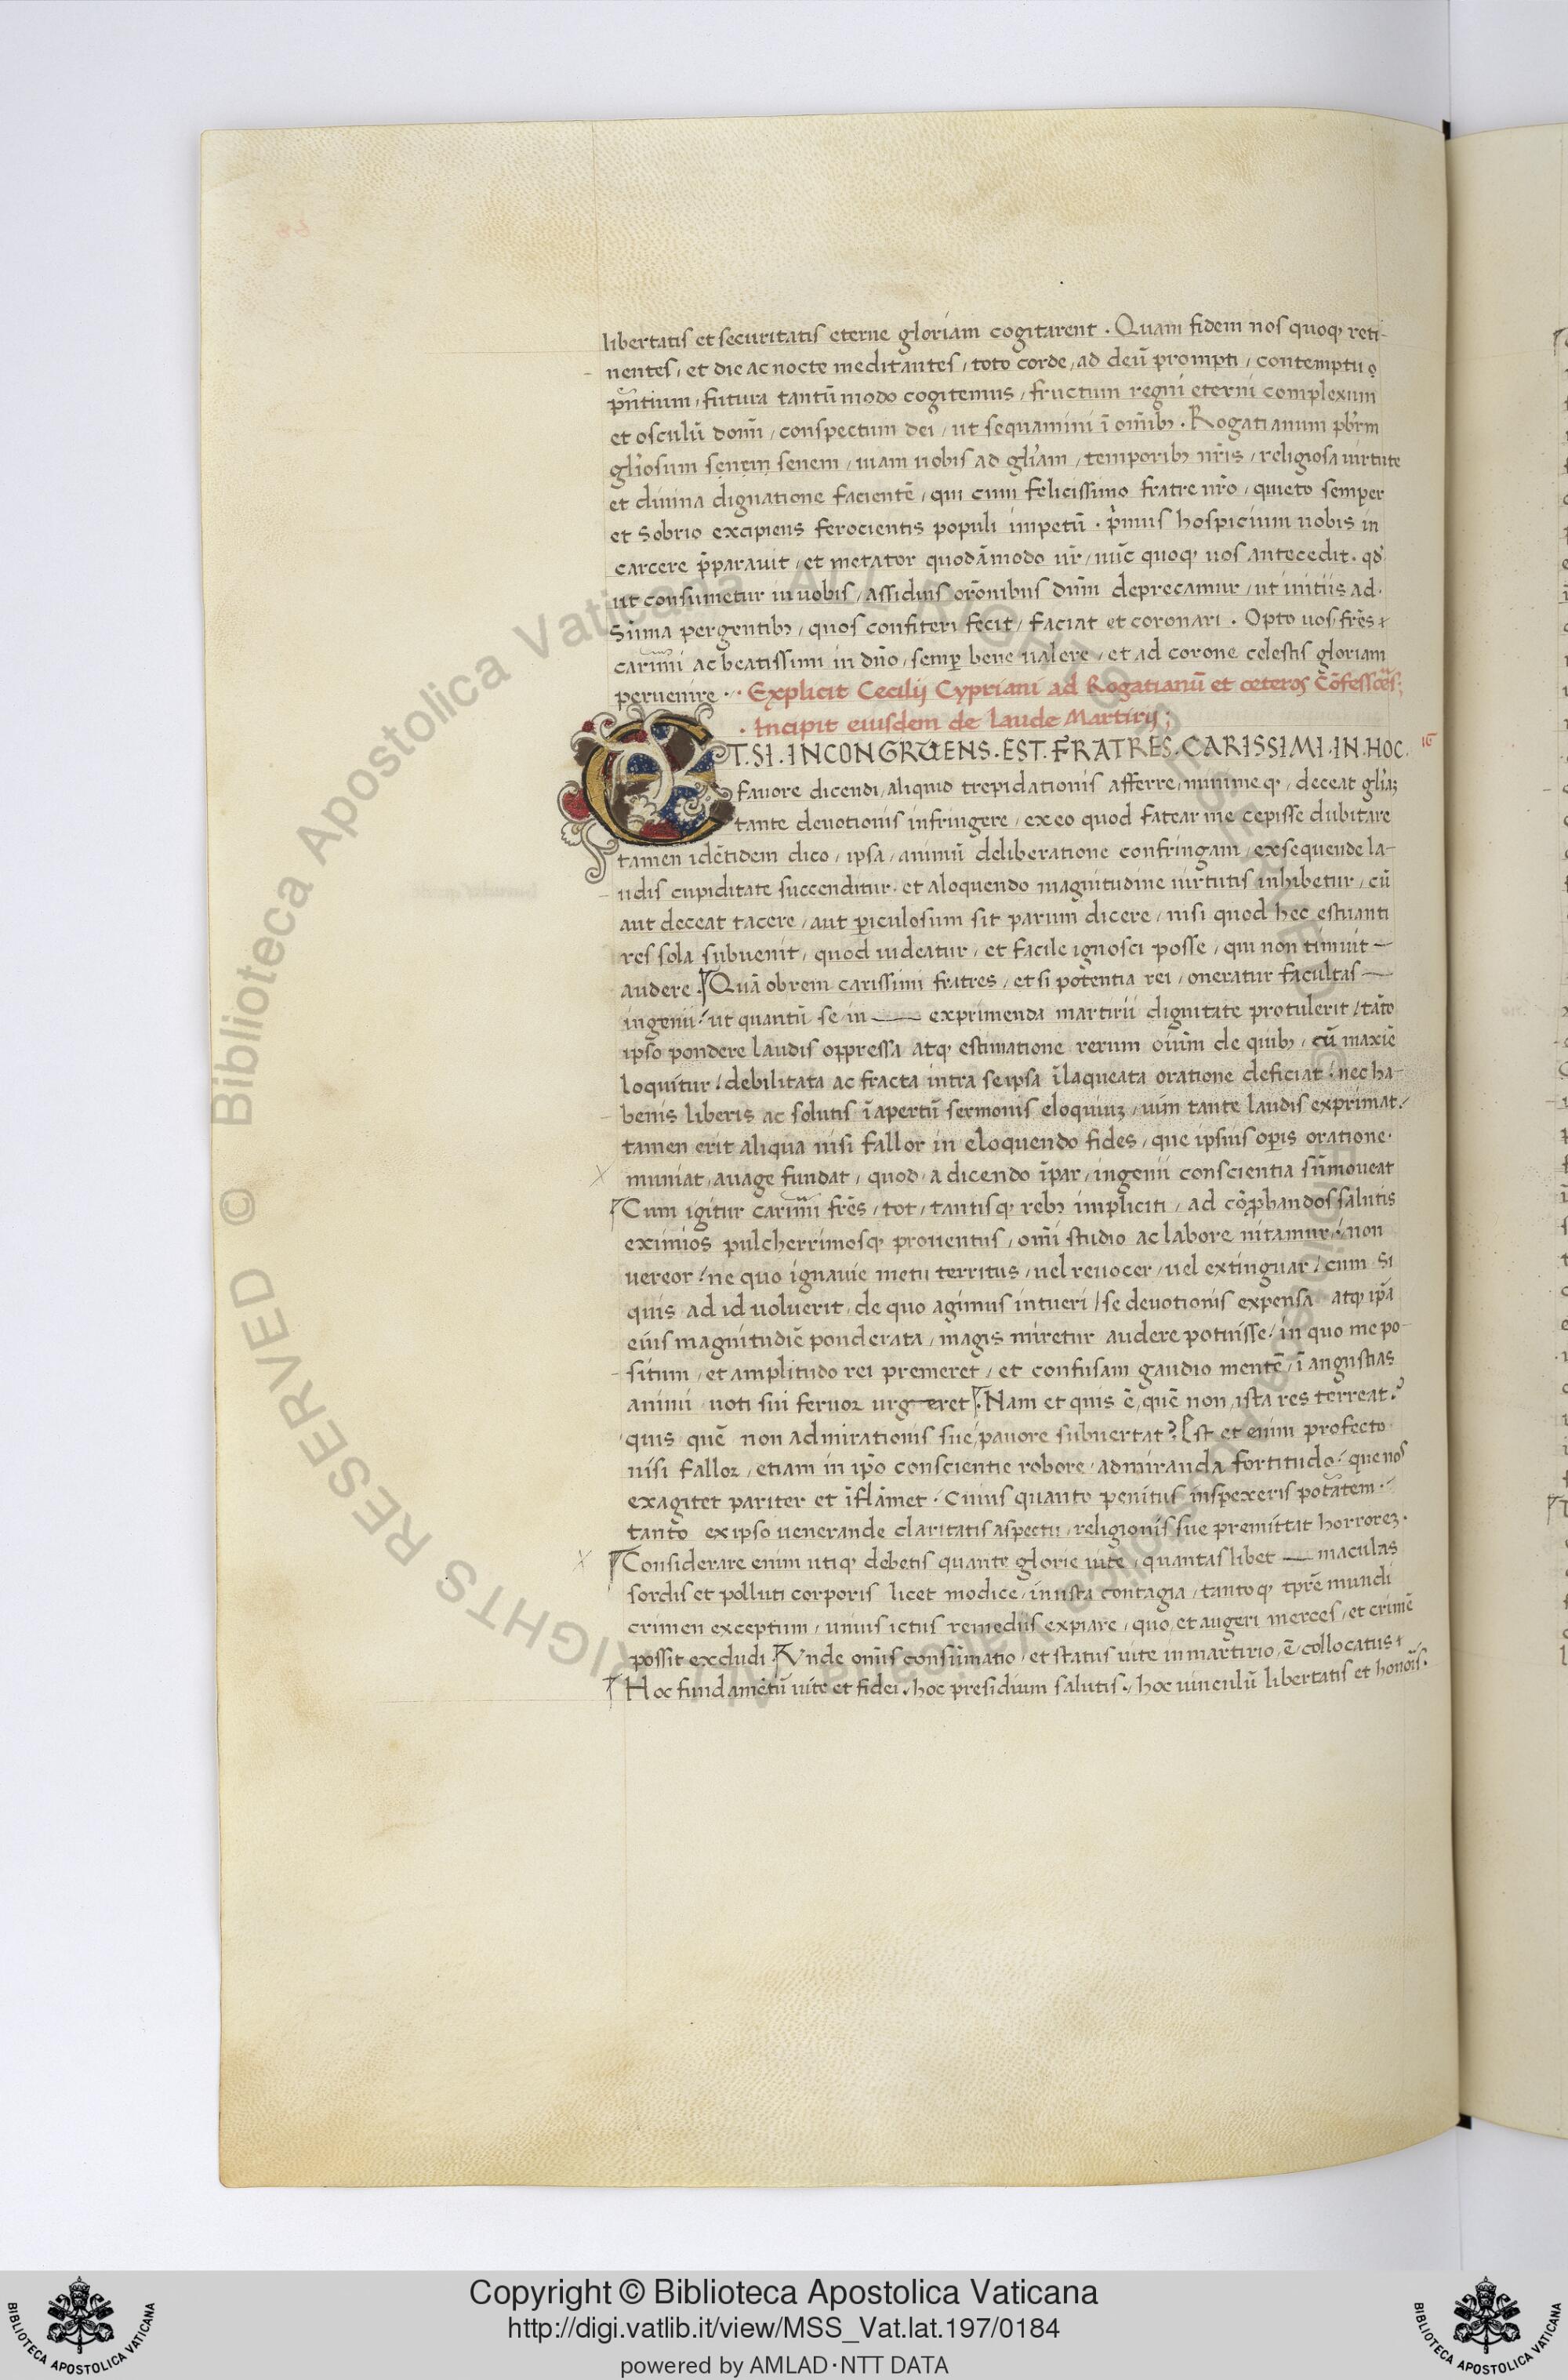 libertatis et securitatis eterne gloriam cogitarent . Quam fidem nos quoqꝫ reti-
nentes / et die ac nocte meditantes / toto corde / ad deū prompti / contemptu
pn̄tium / futura tantū modo cogitemus / fructum regni eterni complexum
et osculū domī / conspectum dei / ut sequamini ī om̄ibꝫ . Rogatianum pb̄rm
gl̄iosum senem senem / uiam uobis ad gl̄iam / temporibꝫ nr̄is / religiosa uirtute
et diuina dignatione facientē / qui cum felicissimo fratre nr̄o / quieto semper
et sobrio excipiens ferocientis populi impetū . p̄mus hospicium uobis in
carcere p̄parauit / et metator quodāmodo ur̄ / nūc quoqꝫ uos antecedit . qd̄
ut consumetur in uobis / assiduis orōnibus dn̄m deprecamur / ut initiis ad
sūma pergentibꝫ / quos confiteri fecit / faciat et coronari . Opto uos / fr̄es
carīmi ac beatissimi in dn̄o / semꝑ bene ualere / et ad corone celestis gloriam
peruenire . . Explicit Cecilij Cypriani ad Rogatianū et ceteros Cōfessores ;
. Incipit eiusdem de laude Martirij ;
ET . SI . INCONGRUENS . EST . FRATRES . CARISSIMI . IN . HOC . 16
fauore dicendi / aliquid trepidationis afferre / minimeqꝫ / deceat gl̄iaꝫ
tante deuotionis infringere / ex eo quod fatear me cepisse dubitare
tamen idētidem dico / ipsa / animū deliberatione confringam / exsequende la-
udis cupiditate succenditur . et aloquendo magnitudine uirtutis inhibetur / cū
aut deceat tacere / aut ꝑiculosum sit parum dicere / nisi quod hec estuanti
res sola subuenit / quod uideatur / et facile ignosci posse / qui non timuit —
audere . Quā obrem carissimi fratres / et si potentia rei / oneratur facultas —
ingenii / ut quantū se in —— exprimenda martirii dignitate protulerit / tāto
ipso pondere laudis oppressa atqꝫ estimatione rerum oīum de quibꝫ / cū maxīe
loquitur / debilitata ac fracta intra se ipsa īlaqueata oratione deficiat / nec ha-
benis liberis ac solutis ī apertū sermonis eloquiuꝫ / uim tante laudis exprimat /
tamen erit aliqua nisi fallor in eloquendo fides / que ipsius oꝑis oratione
muniat / auage fundat / quod / a dicendo īpar / ingenii conscientia sūmoueat
Cum igitur carīmi fr̄es / tot / tantisqꝫ rebꝫ impliciti / ad cōp̄bandos salutis
eximios pulcherrimosqꝫ prouentus / om̄i studio ac labore nitamur / non
uereor / ne quo ignauie metu territus / uel reuocer / uel extinguar / cum si
quis ad id uoluerit / de quo agimus intueri / se deuotionis expensa atqꝫ ip̄a
eius magnitudīe ponderata / magis miretur audere potuisse / in quo me po-
situm / et amplitudo rei premeret / et confusam gaudio mentē / ī angustias
animi uoti sui feruor urgeret . Nam et quis ē / quē non / ista res terreat ?
quis quē non admirationis sue / pauore subuertat ? Est et enim profecto
nisi fallor / etiam in ip̄o conscientie robore / admiranda fortitudo / que nos
exagitet pariter et īflāmet / Cuius quanto penitus inspexeris potātem .
tanto ex ipso uenerande claritatis aspectu / religionis sue premittat horroreꝫ .
Considerare enim utiqꝫ debetis quante glorie uite / quantas libet — maculas
sordis et polluti corporis licet modice / iniusta contagia / tantoqꝫ tp̄re mundi
crimen exceptum / unius ictus remediis expiare / quo / et augeri merces / et crimē
possit excludi . Vnde om̄is consūmatio / et status uite in martirio / ē / collocatus
Hoc fundamētū uite et fidei / hoc presidium salutis / hoc uinculū libertatis et honoris .
Copyright © Biblioteca Apostolica Vaticana
http://digi.vatlib.it/view/MSS_Vat.lat.197/0184
powered by AMLAD·NTT DATA
BIBLIOTECA APOSTOLICA VATICANA
BIBLIOTECA APOSTOLICA VATICANA
© Biblioteca Apostolica Vaticana ALL RIGHTS RESERVED